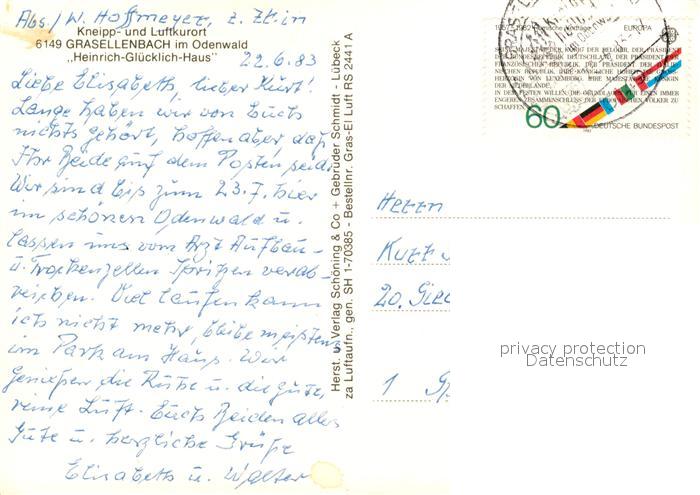 Abs./ W. Hoffmeyer, z. Zt. in
Kneipp- und Luftkurort
6149 GRASELLENBACH im Odenwald
„Heinrich-Glücklich-Haus"
22.6.83
Liebe Elisabeth, lieber Kurt!
Lange haben wir von Euch
nichts gehört, hoffen aber, daß
Ihr Beide auf dem Posten seid.
Wir sind bis zum 23.7. hier
im schönen Odenwald u.
lassen uns vom Arzt Aufbau-
u. Trockenzellen Spritzen verab-
reichen. Viel laufen kann
ich nicht mehr, bleibe meistens
im Park am Haus. Wir
genießen die Ruhe u. die gute,
reine Luft. Euch Beiden alles
Gute u. herzliche Grüße
Elisabeth u. Walter
Herst. u. Verlag Schöning & Co + Gebrüder Schmidt - Lübeck
za Luftaufn., gen. SH 1-70385 - Bestellnr. Gras-El Luft RS 2441 A
EUROPA
SEINE MAJESTÄT DER KÖNIG DER BELGIER, DER PRÄSIDENT
DER BUNDESREPUBLIK DEUTSCHLAND, DER PRÄSIDENT DER
FRANZÖSISCHEN REPUBLIK, DER PRÄSIDENT DER ITALIENI-
SCHEN REPUBLIK, IHRE KÖNIGLICHE HOHEIT DIE GROSS-
HERZOGIN VON LUXEMBURG, IHRE MAJESTÄT DIE KÖNIGIN
DER NIEDERLANDE,
IN DEM FESTEN WILLEN, DIE GRUNDLAGEN FÜR EINEN IMMER
ENGEREN ZUSAMMENSCHLUSS DER EUROPÄISCHEN VÖLKER ZU
SCHAFFEN
60
DEUTSCHE BUNDESPOST
Herrn
Kurt
20.
1
privacy protection
Datenschutz